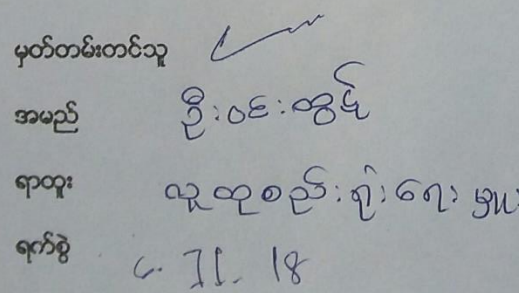 မှတ်တမ်းတင်သူ
အမည် ဦးဝင်းထွဋ်
ရာထူး လူထုစည်းရုံးရေးမှူး
ရက်စွဲ ၆. 11. 18